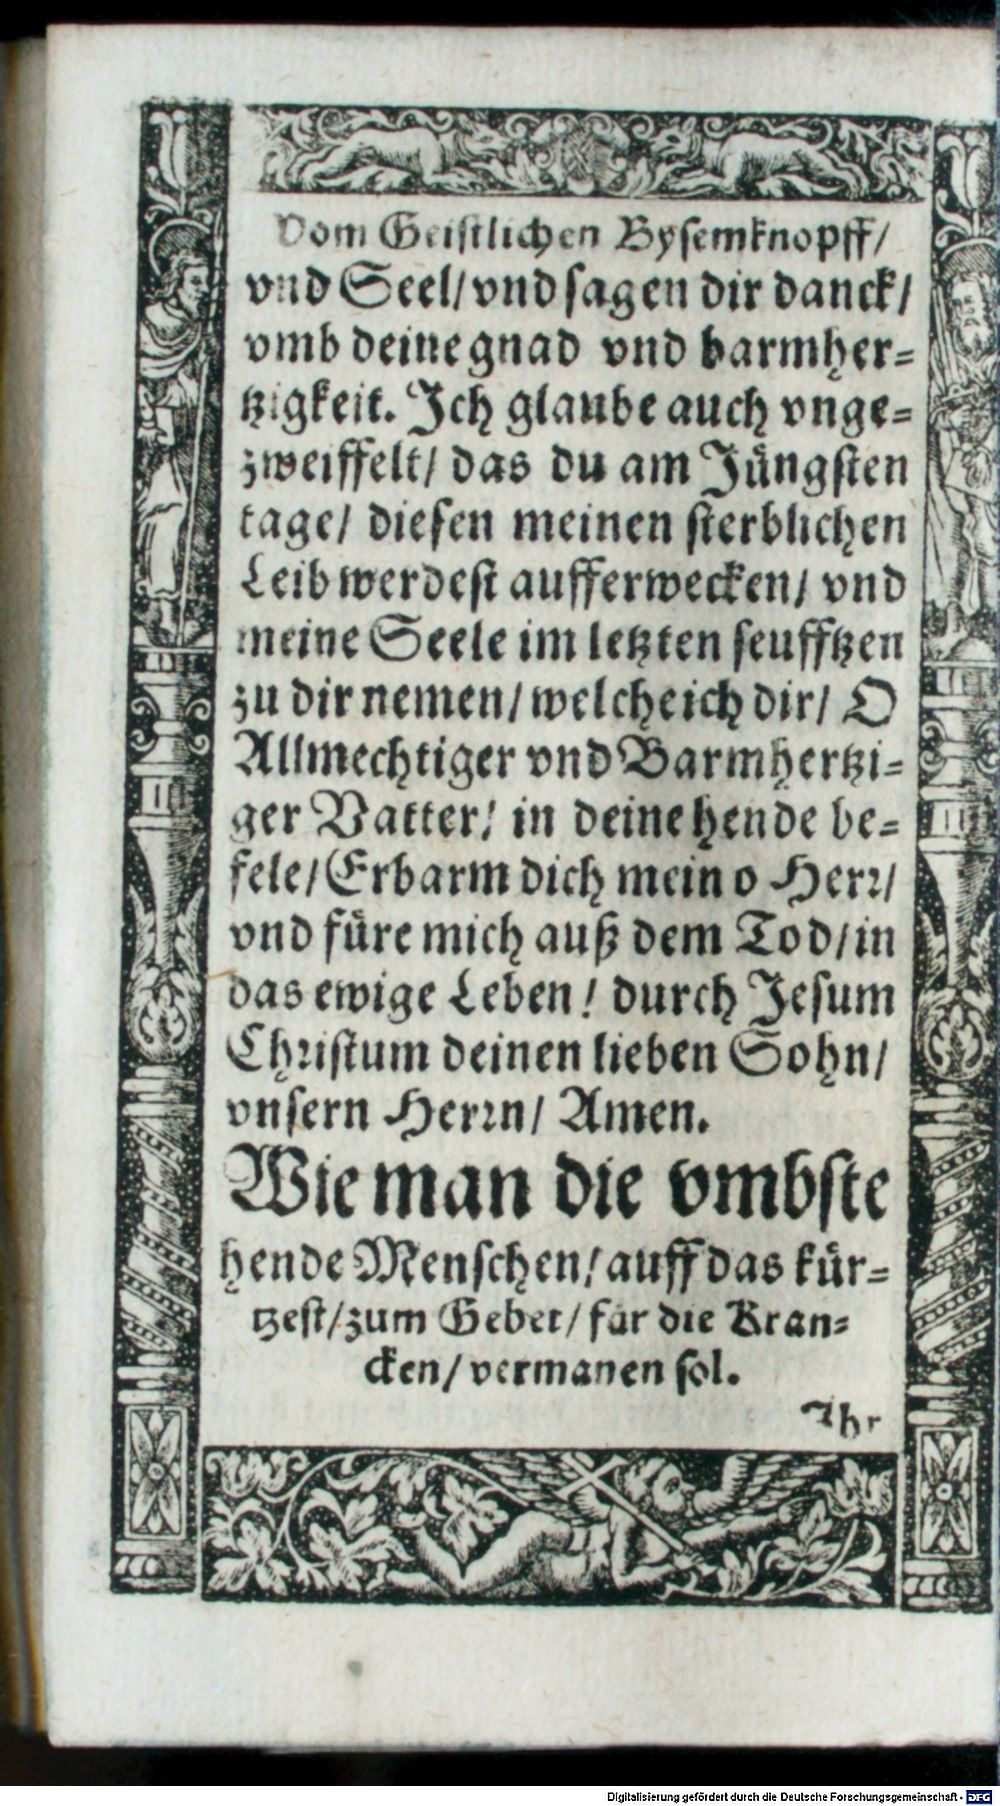 Vom Geistlichen Bysemknopff/
vnd Seel/ vnd sagen dir danck/
vmb deine gnad vnd barmher-
tzigkeit. Ich glaube auch vnge-
zweiffelt/ das du am Jüngsten
tage/ diesen meinen sterblichen
Leib werdest aufferwecken/ vnd
meine Seele im letzten seufftzen
zu dir nemen/ welche ich dir/ O
Allmechtiger vnd Barmhertzi-
ger Vatter/ in deine hende be-
fele/ Erbarm dich mein o Herr/
vnd füre mich auß dem Tod/ in
das ewige Leben/ durch Jesum
Christum deinen lieben Sohn/
vnsern Herrn/ Amen.
Wie man die vmbste
hende Menschen/ auff das kür-
tzest/ zum Gebet/ für die Kran-
cken/ vermanen sol.
Ihr
Digitalisierung gefördert durch die Deutsche Forschungsgemeinschaft - DFG